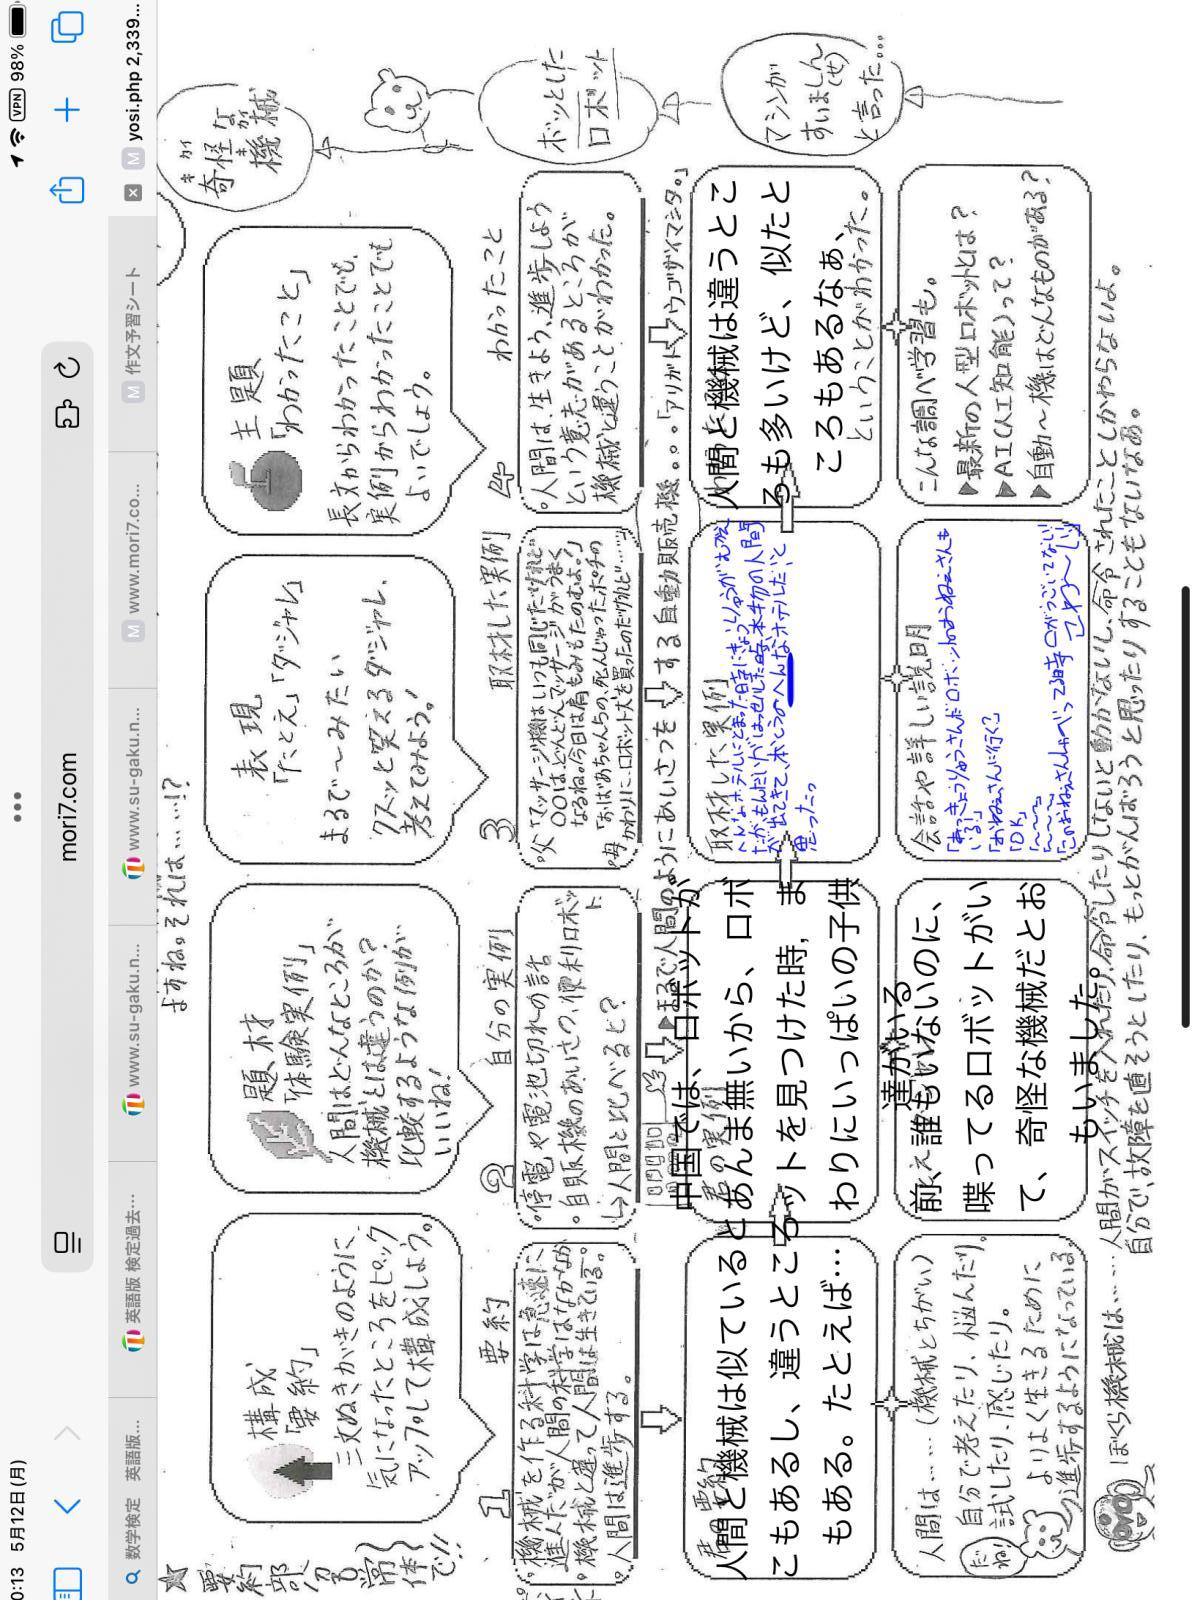 0:13 5月12日(月)
mori7.com
VPN 98%
数学検定 英語版…
英語版 検定過去…
www.su-gaku.n…
www.su-gaku.n…
www.su-gaku.n…
www.mori7.co…
作文予習シート
yosi.php 2,339…
よすねっそれは……!?
奇怪な
キカイ
機械
ボッとした
ロボット
マシンが
すいましん
(せ)
と言った…
要約部分も常体で!!
構成
「要約」
三文ぬきがきのように
気になったところをピック
アップして構成しよう。
題材
「体験実例」
人間はどんなところが
機械とは違うのか?
比較するような例が
いいね!
表現
「たとえ」「ダジャレ」
まるで〜みたい
クスッと笑えるダジャレ、
考えてみよう!
主題
「わかったこと」
長文からわかったことでも、
実例からわかったことでも
よいでしょう。
1 要約
・機械を作る科学は急速に
進んだが人間の科学はなかなか
・機械と違って人間は生きている。
・人間は進歩する。
2 自分の実例
・停電や電池切れの話
・自販機のあいさつ、便利ロボット
↳人間と比べると?
3 取材した実例
・父「マッサージ機はいつも同じだけれど
〇〇はどんどんマッサージがうまく
なるね。今日は肩ももみもたのむよ。」
・母「おばあちゃんちの、死んじゃったポチの
かわりにロボット犬を買ったのだけれど……」
4 わかったこと
・人間は、生きよう、進歩しよう
という意志があるところが
機械と違うことがわかった。
▶まるで人間のようにあいさつをする自動販売機。。。「アリガトウゴザイマシタ。」
君の要約
人間と機械は似ているとこ
もあるし、違うところ
もある。たとえば…
君の実例
中国では、ロボットが
あんま無いから、ロボ
ットを見つけた時、ま
わりにいっぱいの子供
達がいる
取材した実例
が出てきて、本とうのへんなホテルだ、と
思ったっ
人間と機械は違うとこ
ろも多いけど、似たと
ころもあるなぁ、
ということがわかった。
人間は……(機械とちがい)
自分で考えたり、悩んだり、
試したり、感じたり。
よりよく生きるために
進歩するようになっている
だね!
前、誰もいないのに、
喋ってるロボットがい
て、奇怪な機械だとお
もいました。
会話や詳しい説明
いる!」
「おねえさんに行く?」
「OK」
こんな調べ学習も。
▶最新の人型ロボットとは?
▶AI(人工知能)って?
▶自動〜機はどんなものがある?
ぼくら機械は……人間がスイッチを入れたり、命令したりしないと動かないし、命令されたことしかやらないよ。
自分で、故障を直そうとしたり、もっとがんばろうと思ったりすることもないなあ。